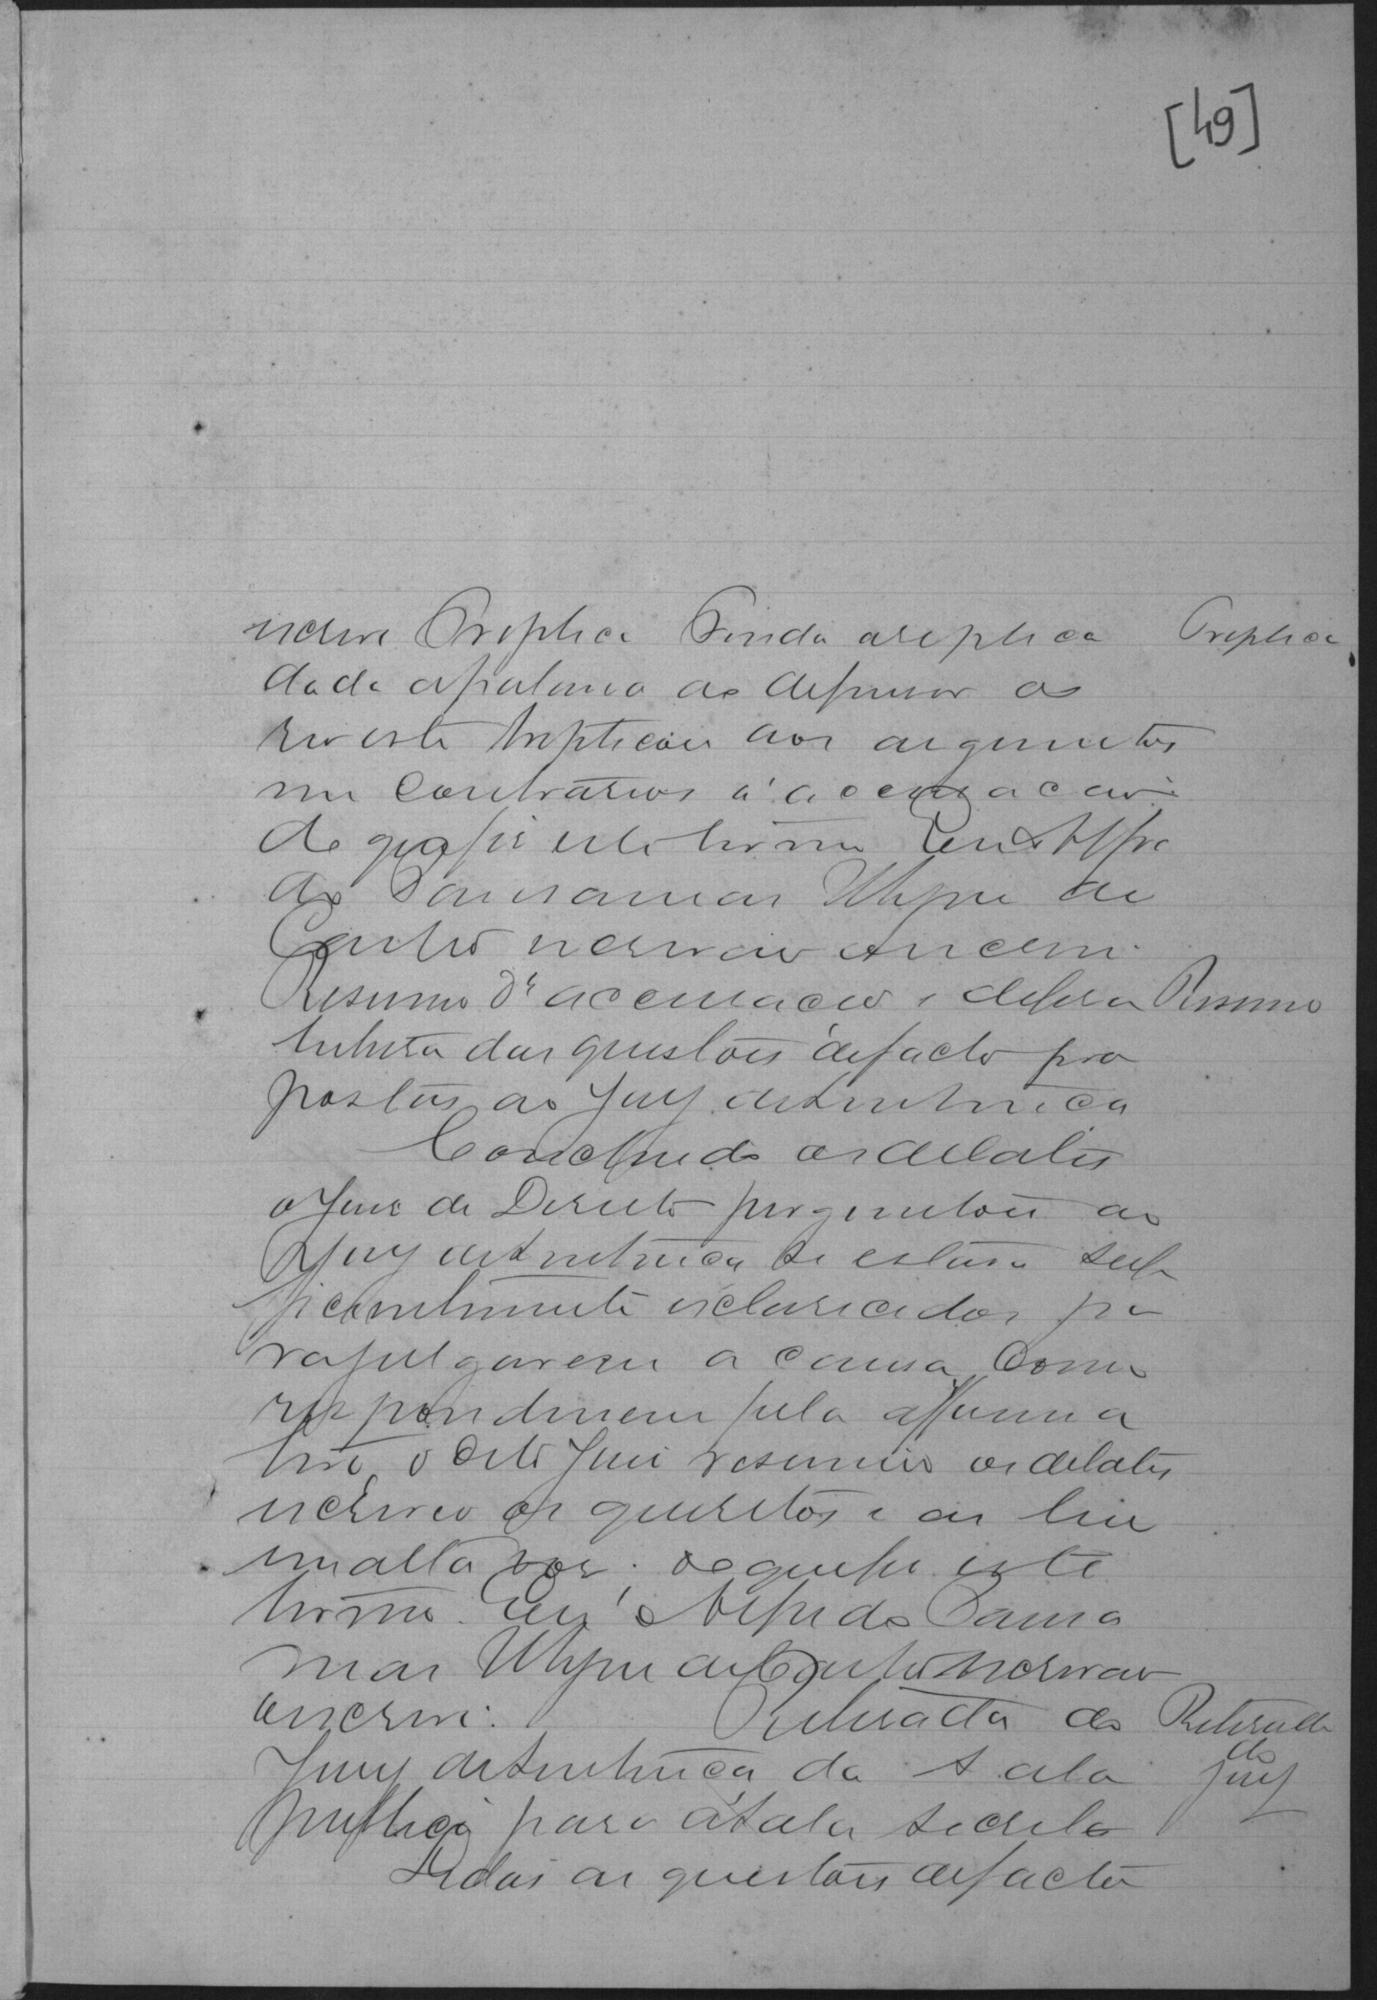 [49]
escrevi Treplica Finda a replica Treplica
dada a palavra ao defensor do
reo este treplicou aos argumentos
em contrarios á accusação
do que fiz este termo Eu Alfre
do
de
Castro escrivão escrevi.
Resumo da accusacão e defesa Resumo
leitura das questões de facto pro
postas ao Jury de Sentença
Concluido os debates
o Juiz de Direito perguntou ao
Jury de Sentença se estava suf
ficientemente esclarecidos pa
ra julgarem a causa, Como
respondessem pela afirma
tiva, o dito Juiz resumiu os debates
escreveo os quesitos e os leu
em alta voz. do que fiz este
termo. Eu Alfredo
de Castro escrivão
escrevi. Retirada do Retirada
do
Jury de Sentença da sala Jury
publica para a sala secreta
Lidas as questões de facto